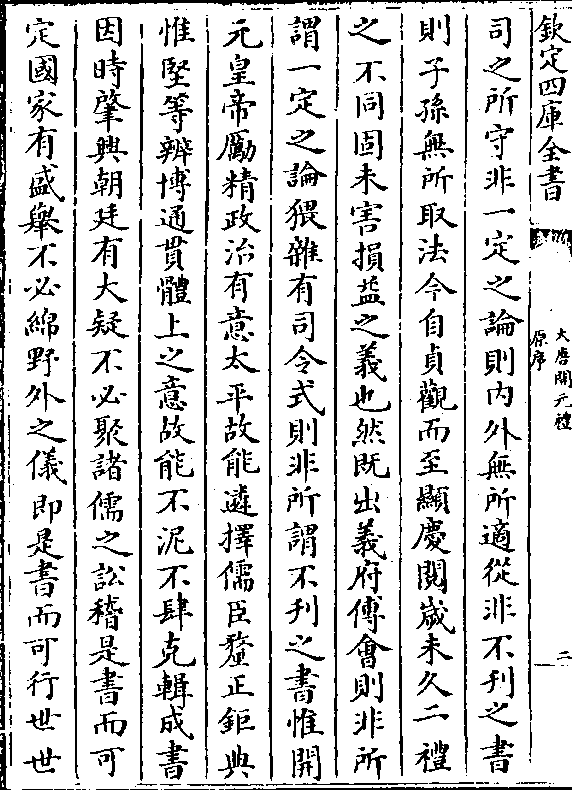 欽定四庫全書
大唐開元禮
原序
二
司之所守非一定之論則内外無所適從非不刊之書
則子孫無所取法今自貞觀而至顯慶閱歲未久二禮
之不同固未害損益之義也然既出義府傅會則非所
謂一定之論猥雜有司令式則非所謂不刊之書惟開
元皇帝勵精政治有意太平故能遴擇儒臣釐正鉅典
惟堅等辨博通貫體上之意故能不泥不肆克輯成書
因時肇興朝廷有大疑不必聚諸儒之訟稽是書而可
定國家有盛舉不必綿野外之儀即是書而可行世世